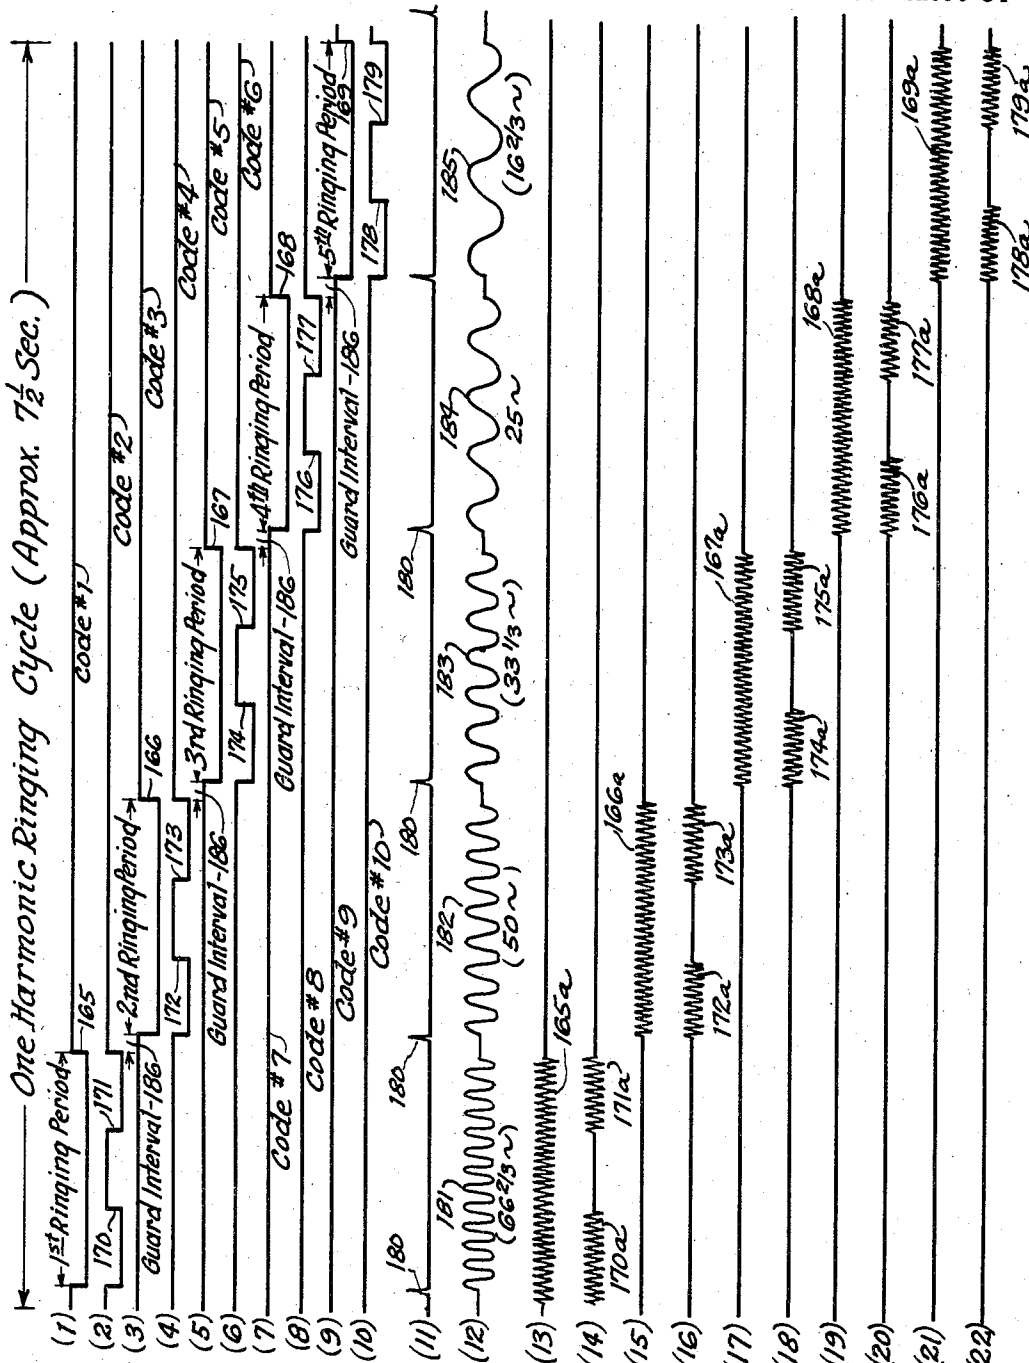 One Harmonic Ringing Cycle (Approx. 7½ Sec.)
(1)
1st Ringing Period
165
Code #1
(2)
170
171
Code #2
(3)
Guard Interval-186
2nd Ringing Period
166
Code #3
(4)
172
173
Code #4
(5)
Guard Interval-186
3rd Ringing Period
167
Code #5
(6)
174
175
Code #6
(7)
Code #7
Guard Interval-186
4th Ringing Period
168
(8)
Code #8
176
177
(9)
Code #9
Guard Interval-186
5th Ringing Period
169
(10)
Code #10
178
179
(11)
180
180
180
180
(12)
181
(66 2/3 ~)
182
(50 ~)
183
(33 1/3 ~)
184
25 ~
185
(16 2/3 ~)
(13)
165a
(14)
170a
171a
(15)
166a
(16)
172a
173a
(17)
167a
(18)
174a
175a
(19)
168a
(20)
176a
177a
(21)
169a
(22)
178a
179a